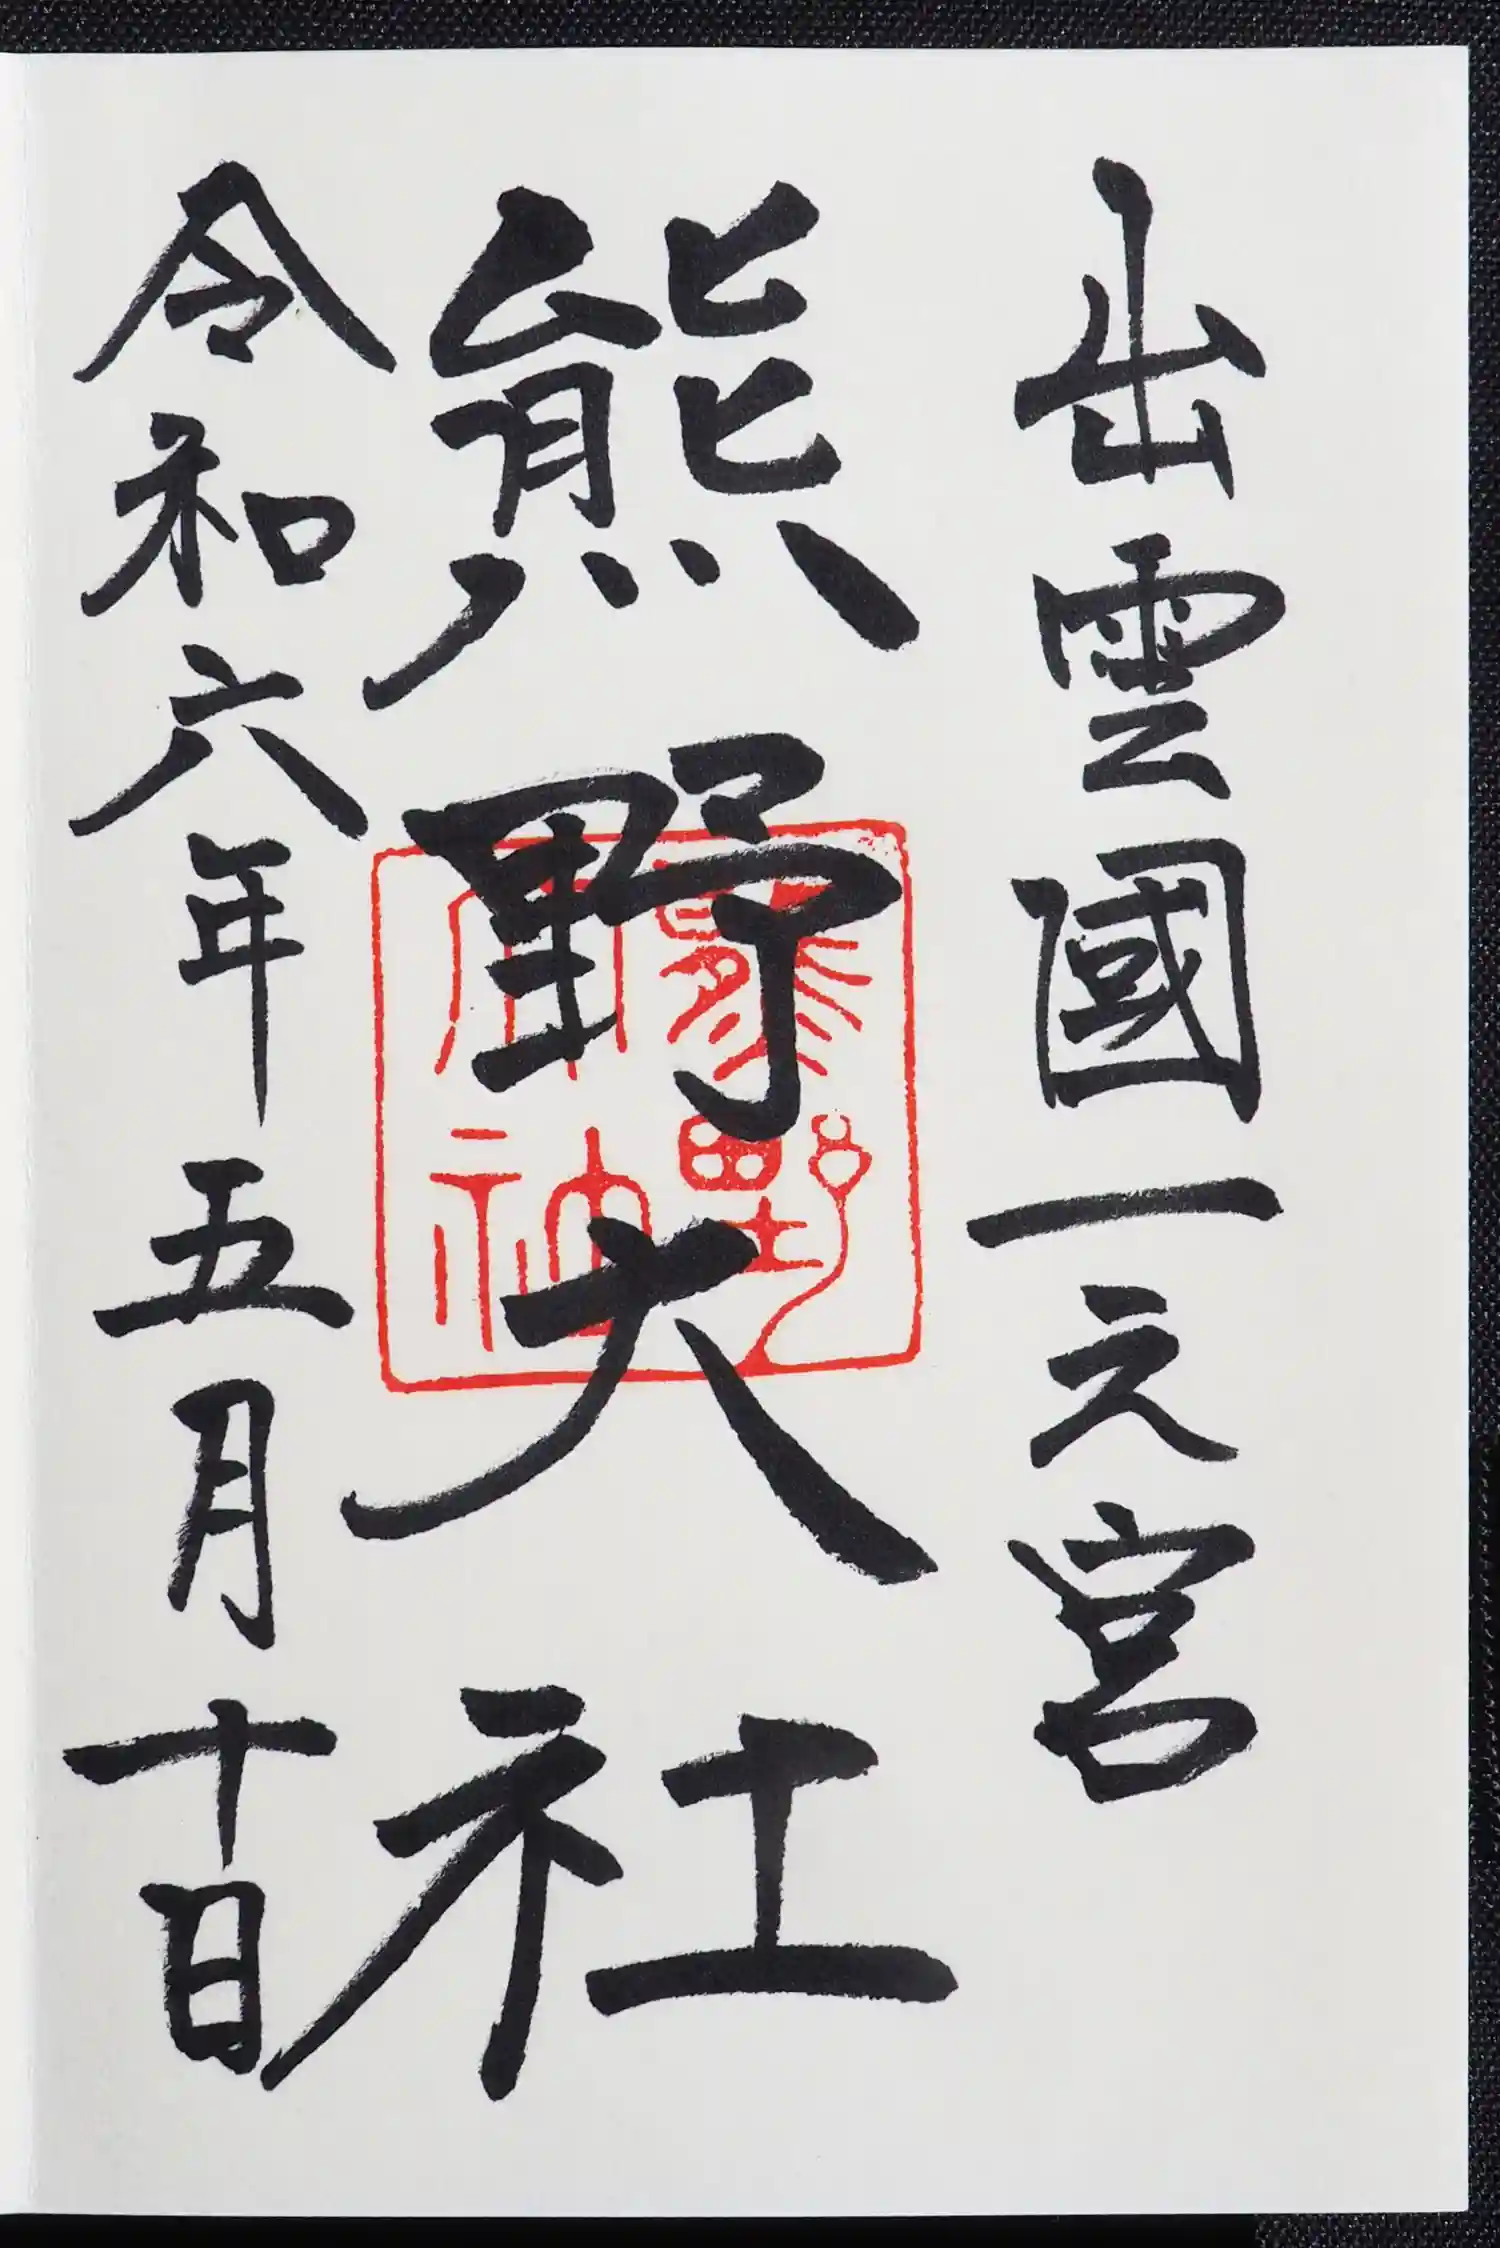 出雲國一之宮
熊野大社
令和六年五月十日
熊野
大神